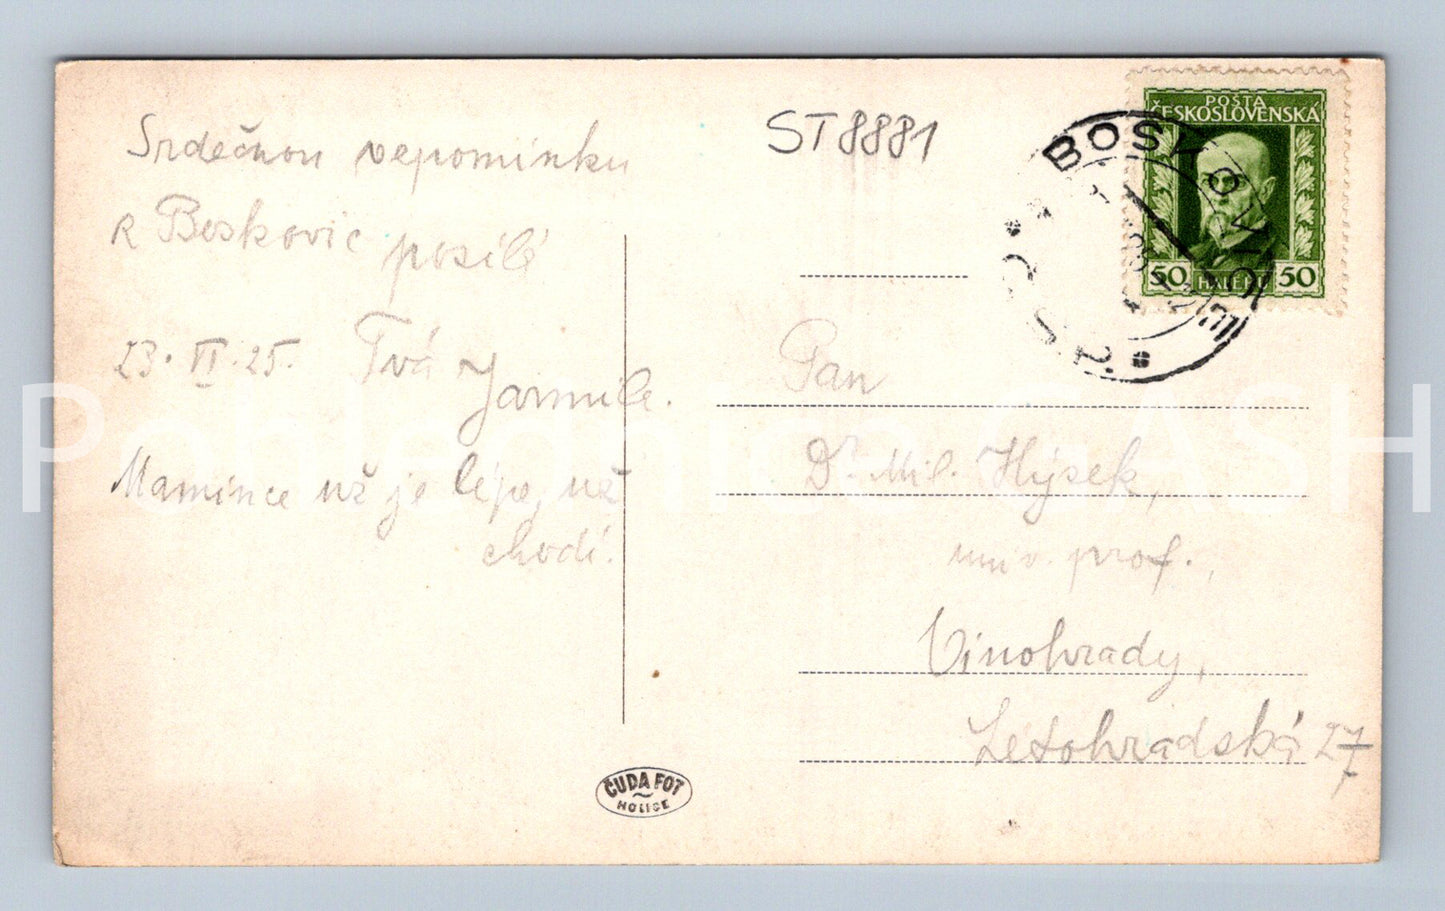 Srdečnou vzpomínku
z Boskovic posílá
23. VI. 25. Tvá
Jarmila.
Mamince už je lépe, už
chodí.
ST8881
POŠTA
ČESKOSLOVENSKÁ
50 HALÉŘŮ 50
BOSKOVICE
Pan
Dr. Mil. Hýsek,
univ. prof.,
Vinohrady,
Letohradská 27
ČUDA FOT
HOLICE
Pohlednice GASH